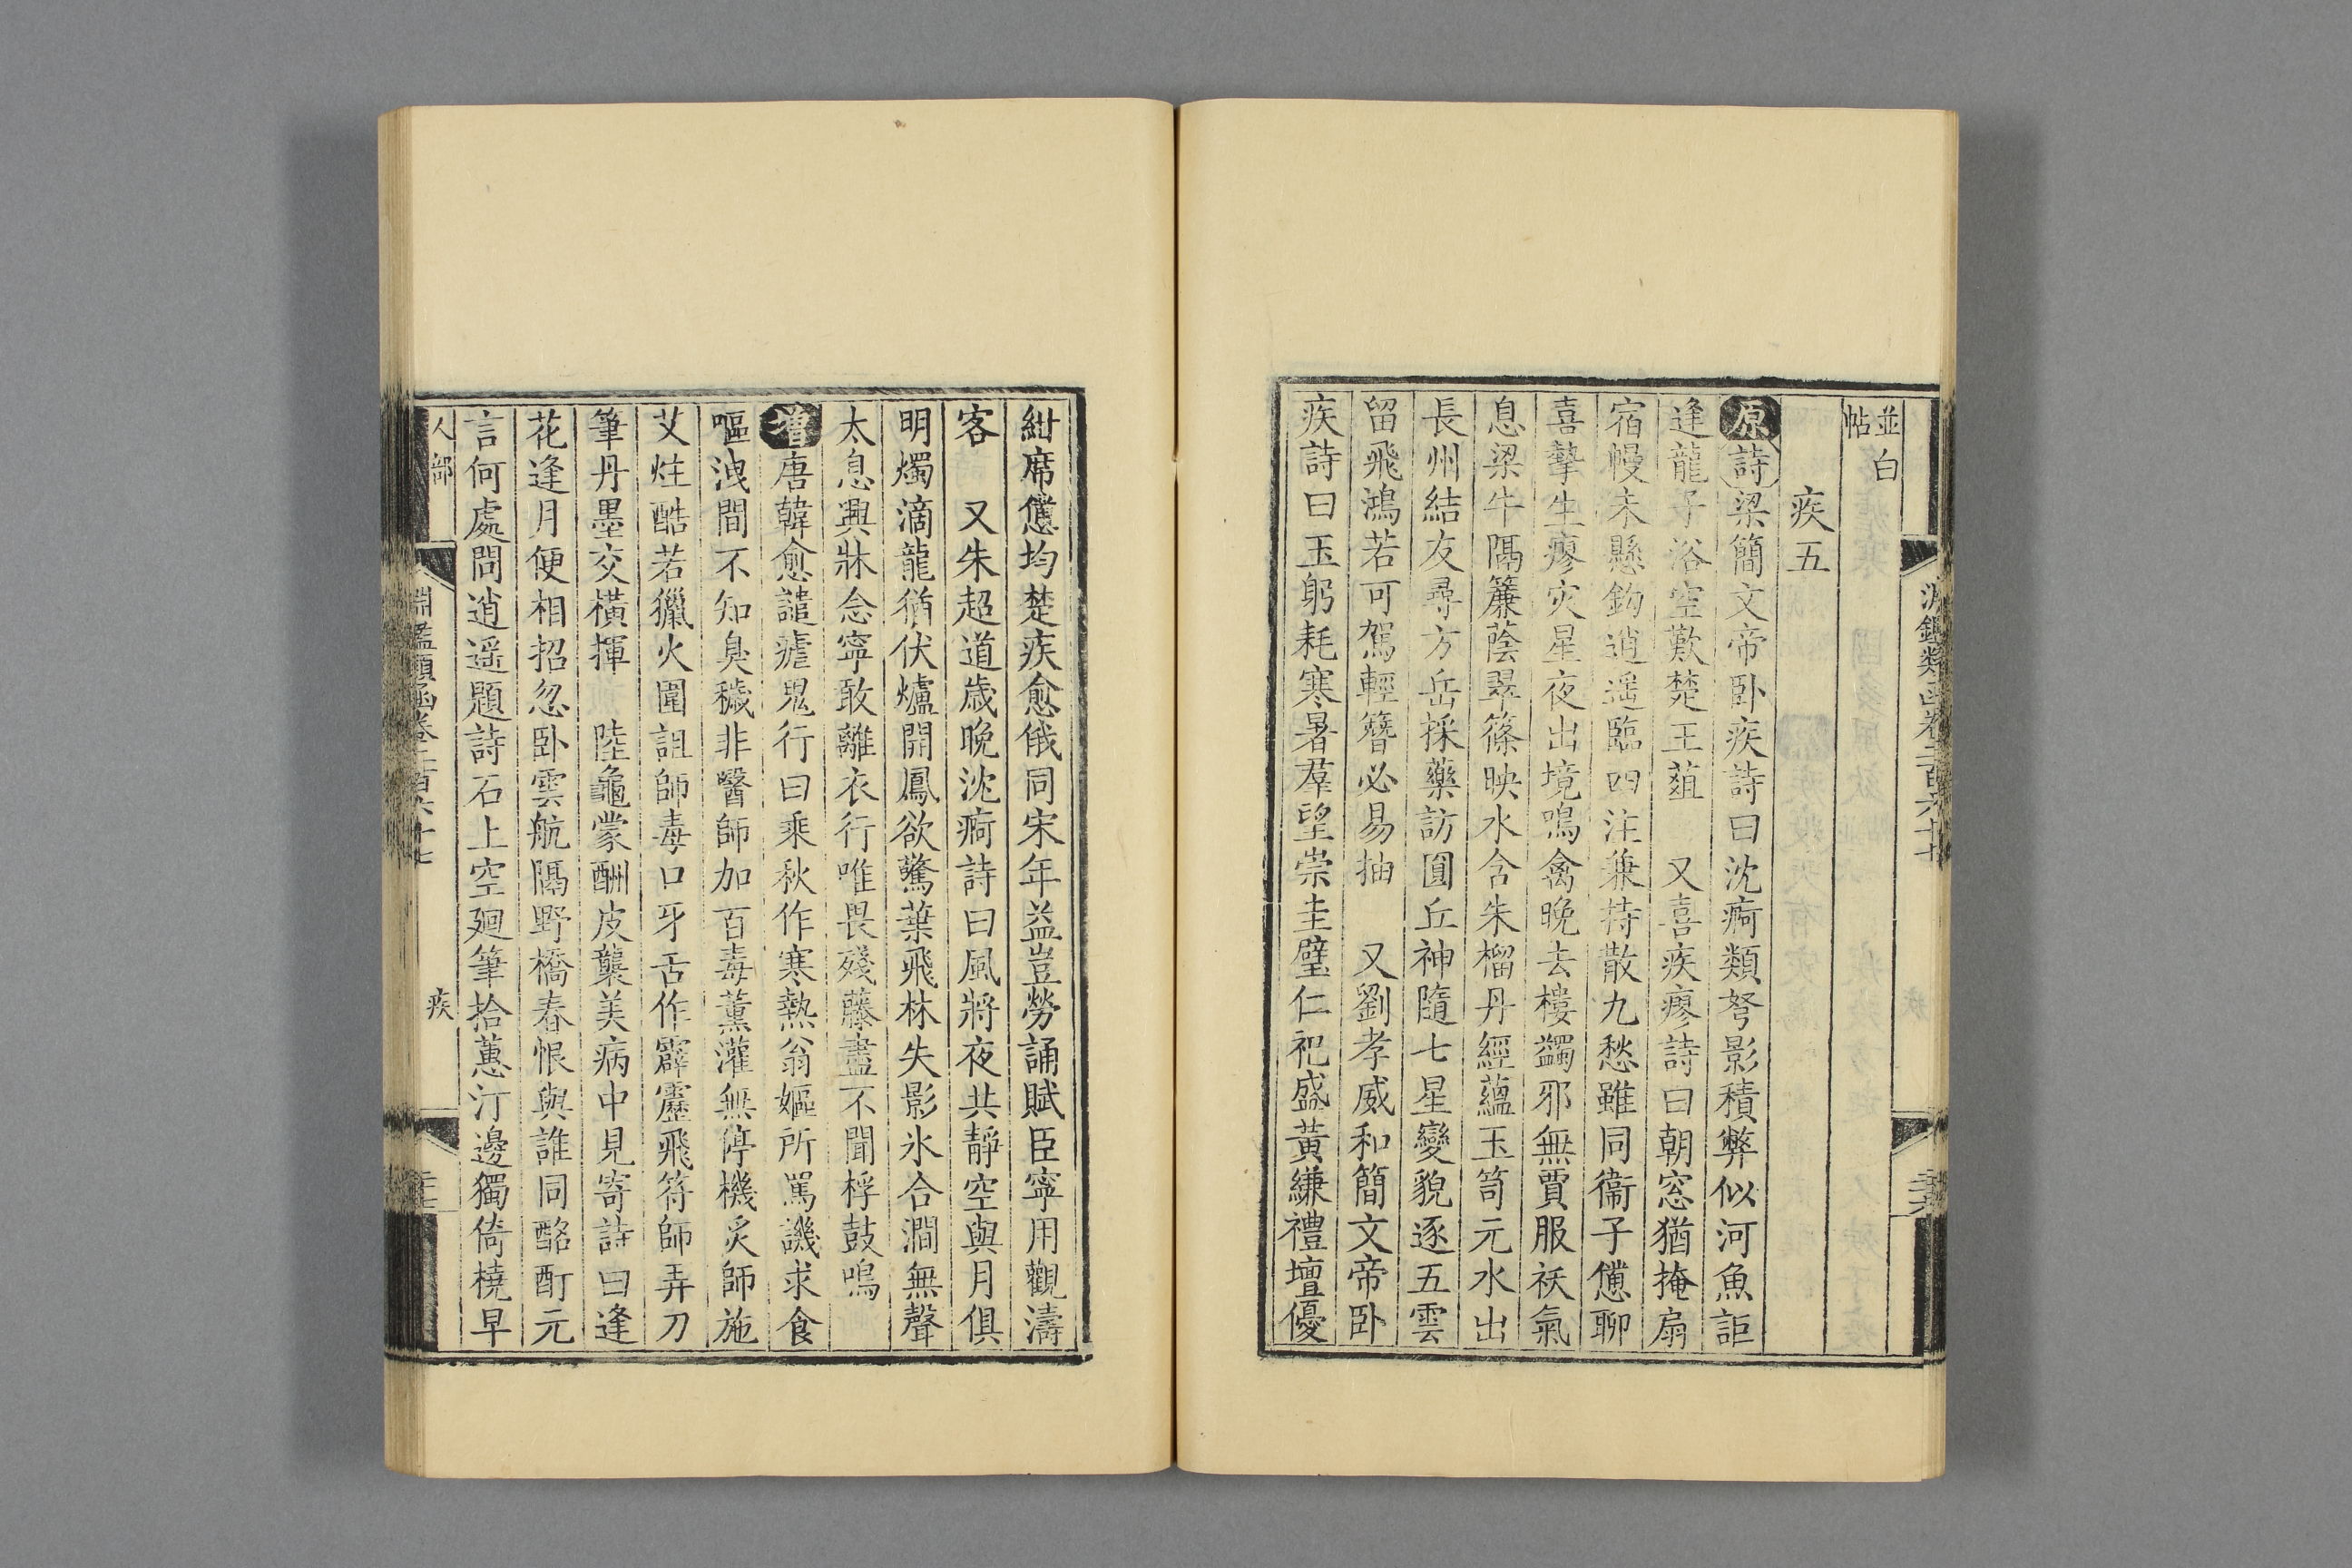 並白
帖
疾五
原詩梁簡文帝卧疾詩曰沈痾類弩影積弊似河魚詎
逢龍子浴空歎楚王葅　又喜疾瘳詩曰朝窓猶掩扇
宿幔未懸鈎逍遥臨四注兼持散九愁雖同衞子儓聊
喜摯生瘳灾星夜出境鳴禽晚去樓蠲邪無賈服祅氣
息梁牛隔簾蔭翠篠映水含朱榴丹經蘊玉笥元水出
長州結友尋方岳採藥訪圓丘神隨七星變貌逐五雲
留飛鴻若可駕輕簪必易抽　又劉孝威和簡文帝卧
疾詩曰玉躬耗寒暑羣望崇圭璧仁祀盛黃縑禮壇優
紺席儓均楚疾愈俄同宋年益豈勞誦賦臣寧用觀濤
客　又朱超道歲晚沈痾詩曰風將夜共靜空與月俱
明燭滴龍猶伏爐開鳳欲驚葉飛林失影氷合澗無聲
太息興牀念寧敢離衣行唯畏殘藤盡不聞桴鼓鳴
增唐韓愈譴瘧鬼行曰乘秋作寒熱翁嫗所罵譏求食
嘔洩間不知臭穢非醫師加百毒薰灌無停機炙師施
艾炷酷若獵火圍詛師毒口牙舌作霹靂飛符師弄刀
筆丹墨交橫揮　陸龜蒙酬皮襲美病中見寄詩曰逢
花逢月便相招忽卧雲航隔野橋春恨與誰同酩酊元
言何處問逍遥題詩石上空廻筆拾蕙汀邊獨倚橈早
人部
淵鑑類函卷二百六十七
疾